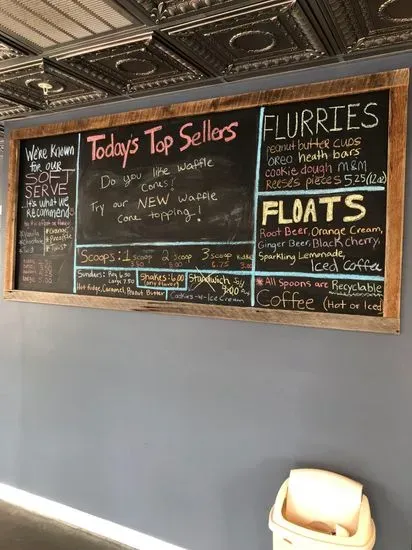 We're Known
for our
SOFT
SERVE
It's what we
recommend
Vanilla
Orange
Pineapple
Twist
Today's Top Sellers
Do you like waffle
cones?
Try our NEW waffle
cone topping!
Scoops: 1 Scoop 2 Scoop 3 Scoop
6.75
Sundaes: Reg 6.50
Large 7.50
Hot fudge, Caramel, Peanut Butter
Shakes: 6.00
(any flavor)
Sandwich
7.00
Cookies-n-Ice Cream
FLURRIES
peanut butter cups
oreo heath bars
cookie dough M&M
Reese's pieces 5.25 (12oz)
FLOATS
Root Beer, Orange Cream,
Ginger Beer, Black Cherry,
Sparkling Lemonade,
Iced Coffee
* All Spoons are Recyclable
Coffee (Hot or Iced)